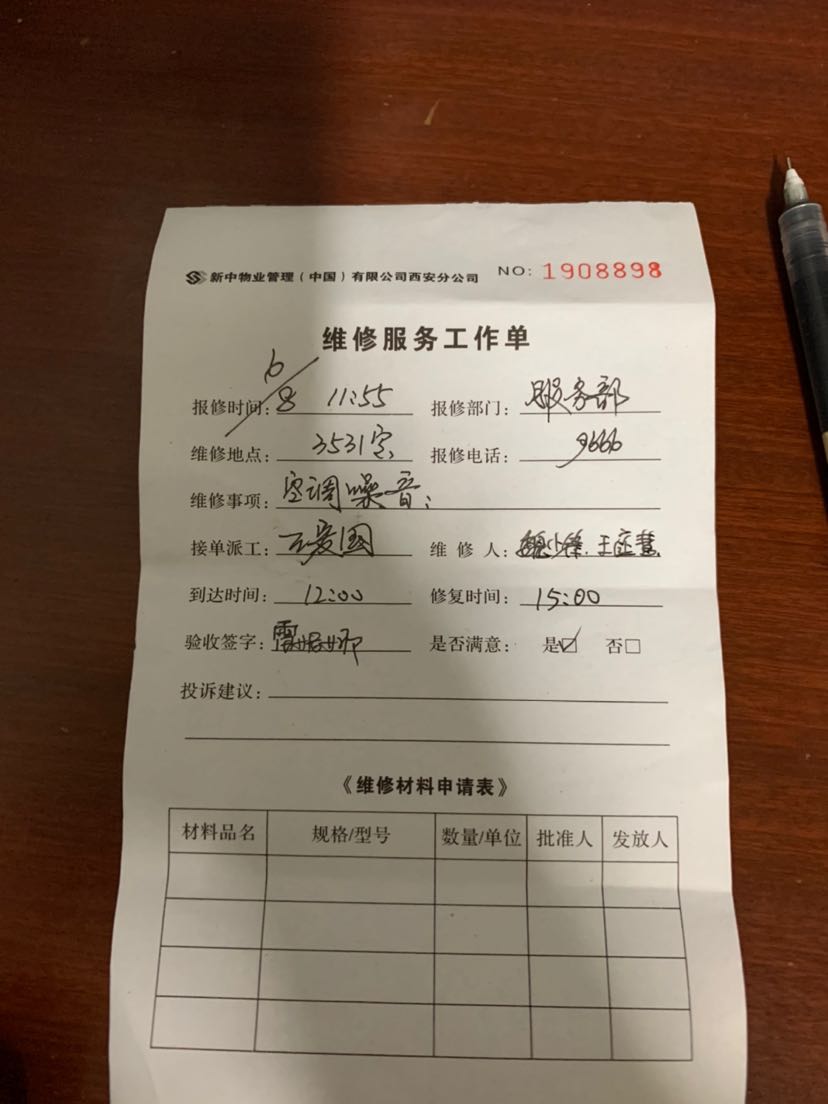 新中物业管理（中国）有限公司西安分公司 NO: 1908898
维修服务工作单
报修时间: 6/8 11:55 报修部门: 服务部
维修地点: 3531室 报修电话: 9666
维修事项: 空调噪音:
接单派工: 爱国 维修人: 魏少锋、王
到达时间: 12:00 修复时间: 15:00
验收签字: 雷 是否满意: 是☑ 否□
投诉建议:
《维修材料申请表》
材料品名 规格/型号 数量/单位 批准人 发放人